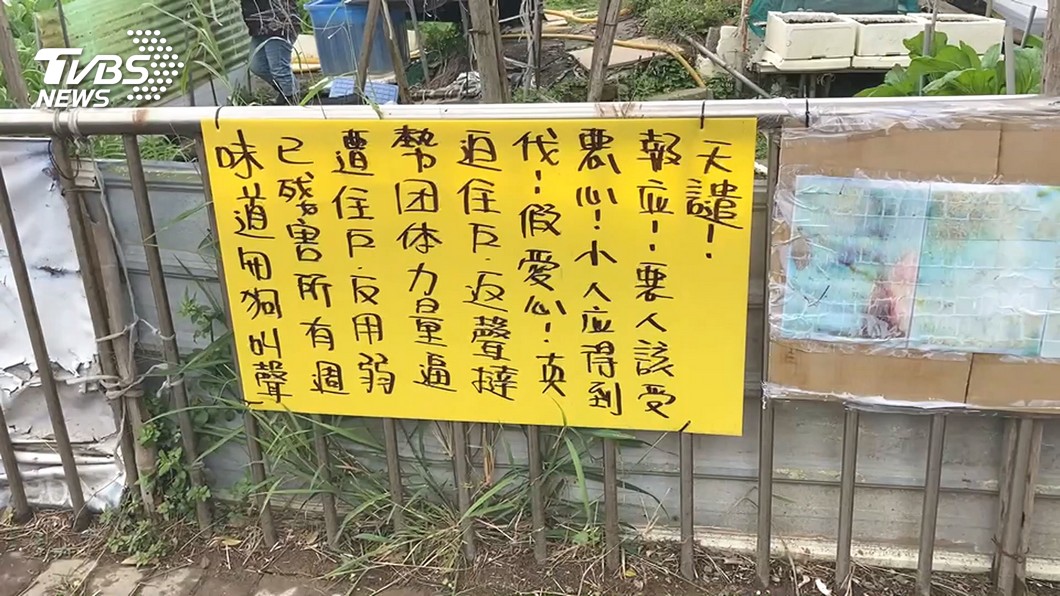 TVBS
NEWS
味道 狗叫聲
已殘害所有週
遭住戶.反用弱
勢团体力量逼
迫住戶.返聲撻
伐!假愛心!真
悪心!小人应得到
報应!悪人該受
天譴!